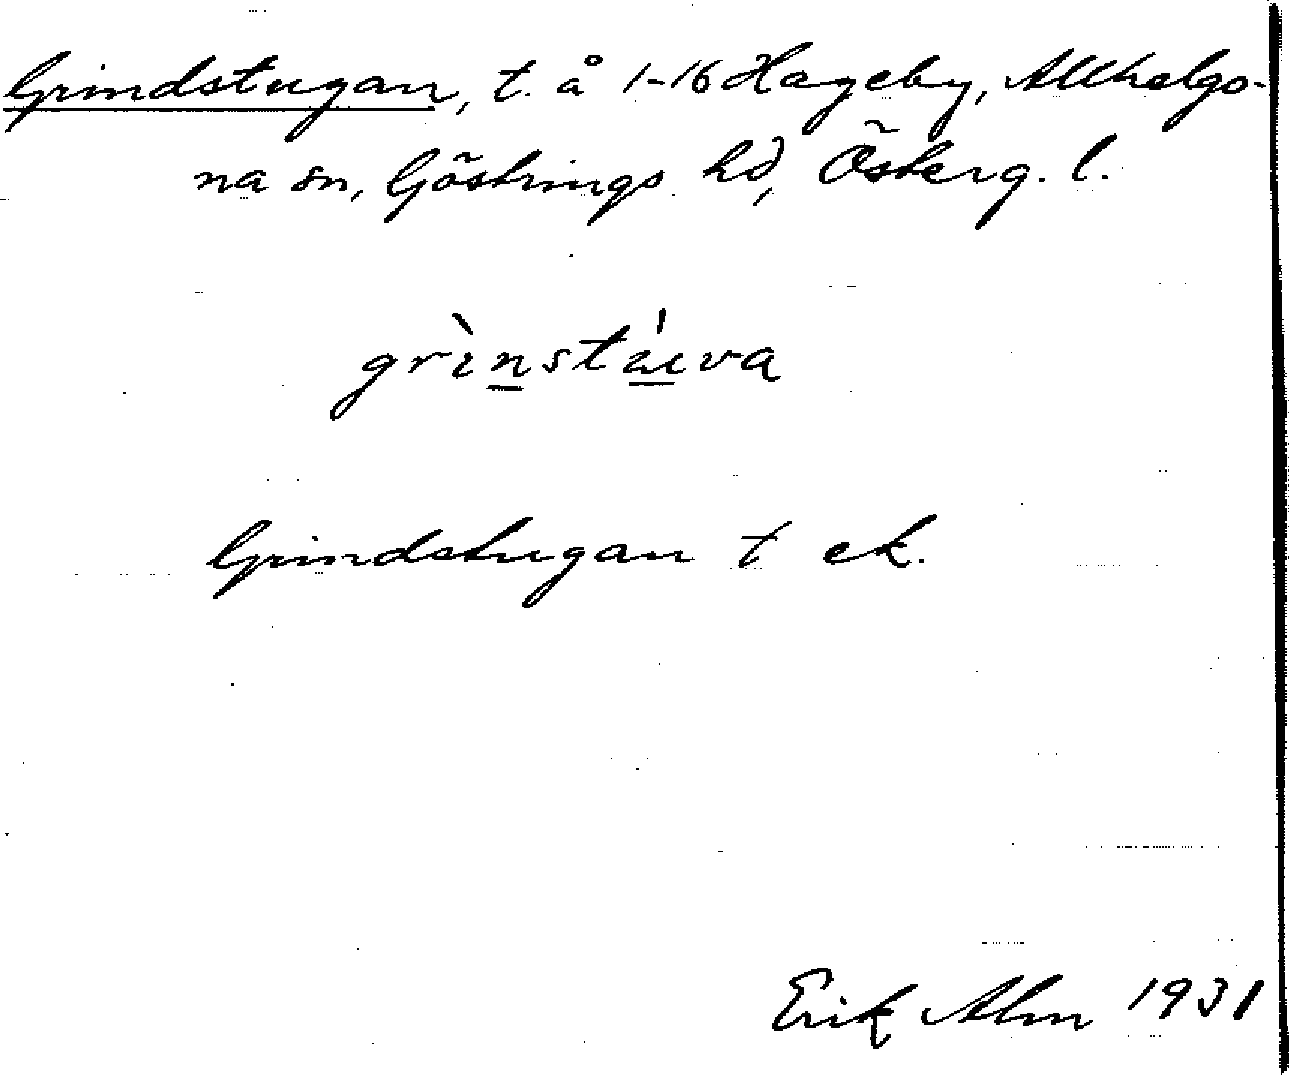 Grindstugan, t. å 1-16 Hageby, Allhelgo-
na sn, Göstrings hd, Österg. l.
grìnstúva
Grindstugan t ek.
Erik Alm 1931